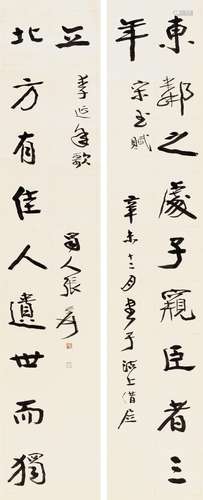 東鄰之處子窺臣者三
年
宋玉賦
辛未十二月書于海上借居
北方有佳人遺世而獨
立
李延年歌
蜀人張爰